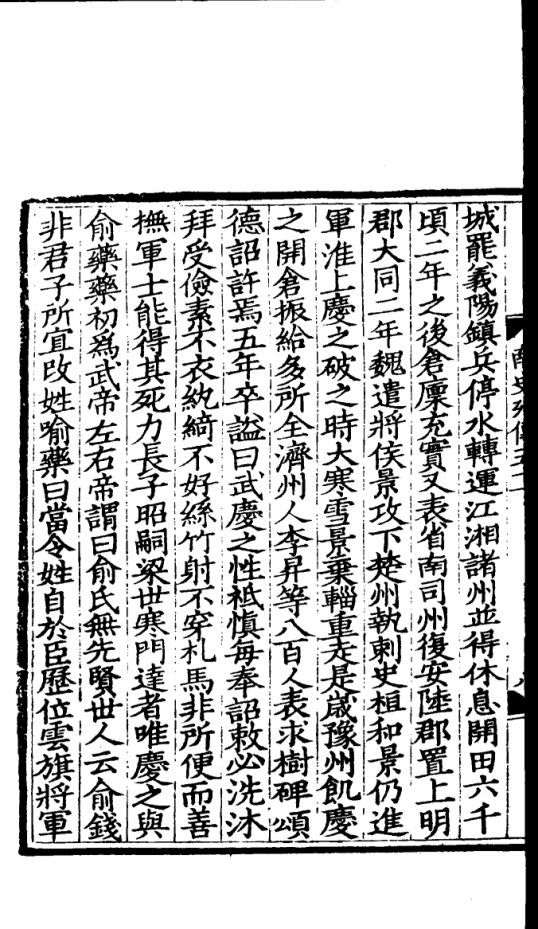 城罷義陽鎮兵停水轉運江湘諸州並得休息開田六千
頃二年之後倉廩充實又表省南司州復安陸郡置上明
郡大同二年魏遣將侯景攻下楚州執刺史桓和景仍進
軍淮上慶之破之時大寒雪景棄輜重走是歲豫州飢慶
之開倉振給多所全濟州人李昇等八百人表求樹碑頌
德詔許焉五年卒諡曰武慶之性祗慎每奉詔敕必洗沐
拜受儉素不衣紈綺不好絲竹射不穿札馬非所便而善
撫軍士能得其死力長子昭嗣梁世寒門達者唯慶之與
俞藥藥初爲武帝左右帝謂曰俞氏無先賢世人云俞錢
非君子所宜改姓喻藥曰當令姓自於臣歷位雲旗將軍